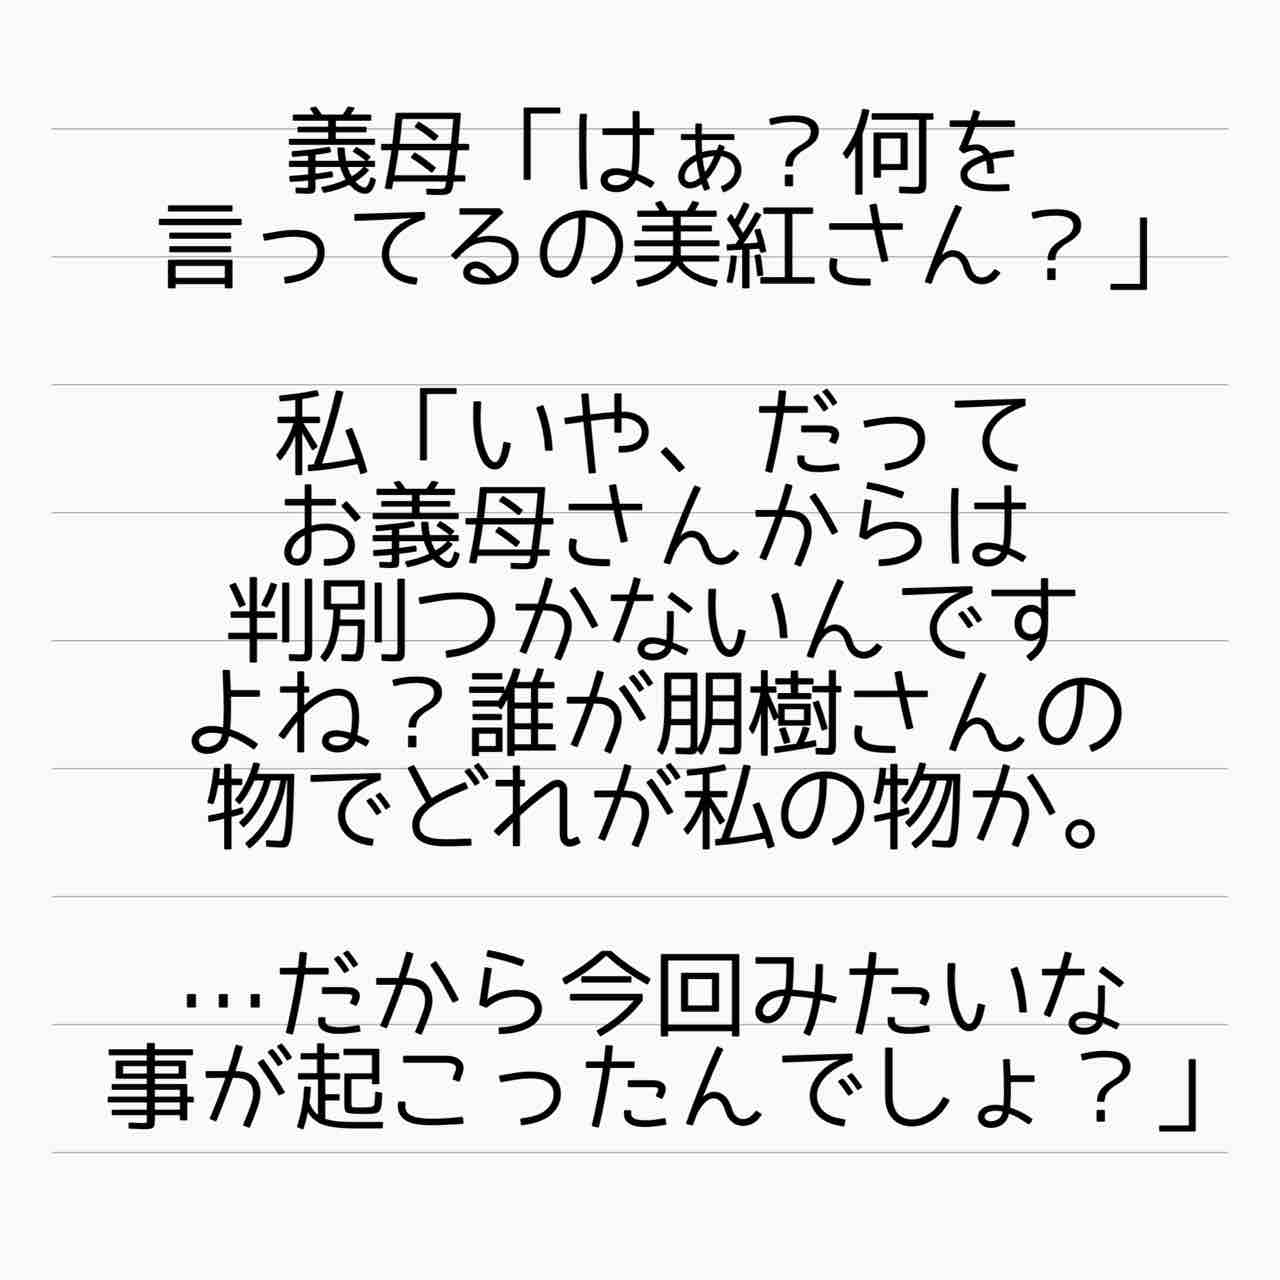 義母「はぁ？何を
言ってるの美紅さん？」
私「いや、だって
お義母さんからは
判別つかないんです
よね？誰が朋樹さんの
物でどれが私の物か。
…だから今回みたいな
事が起こったんでしょ？」